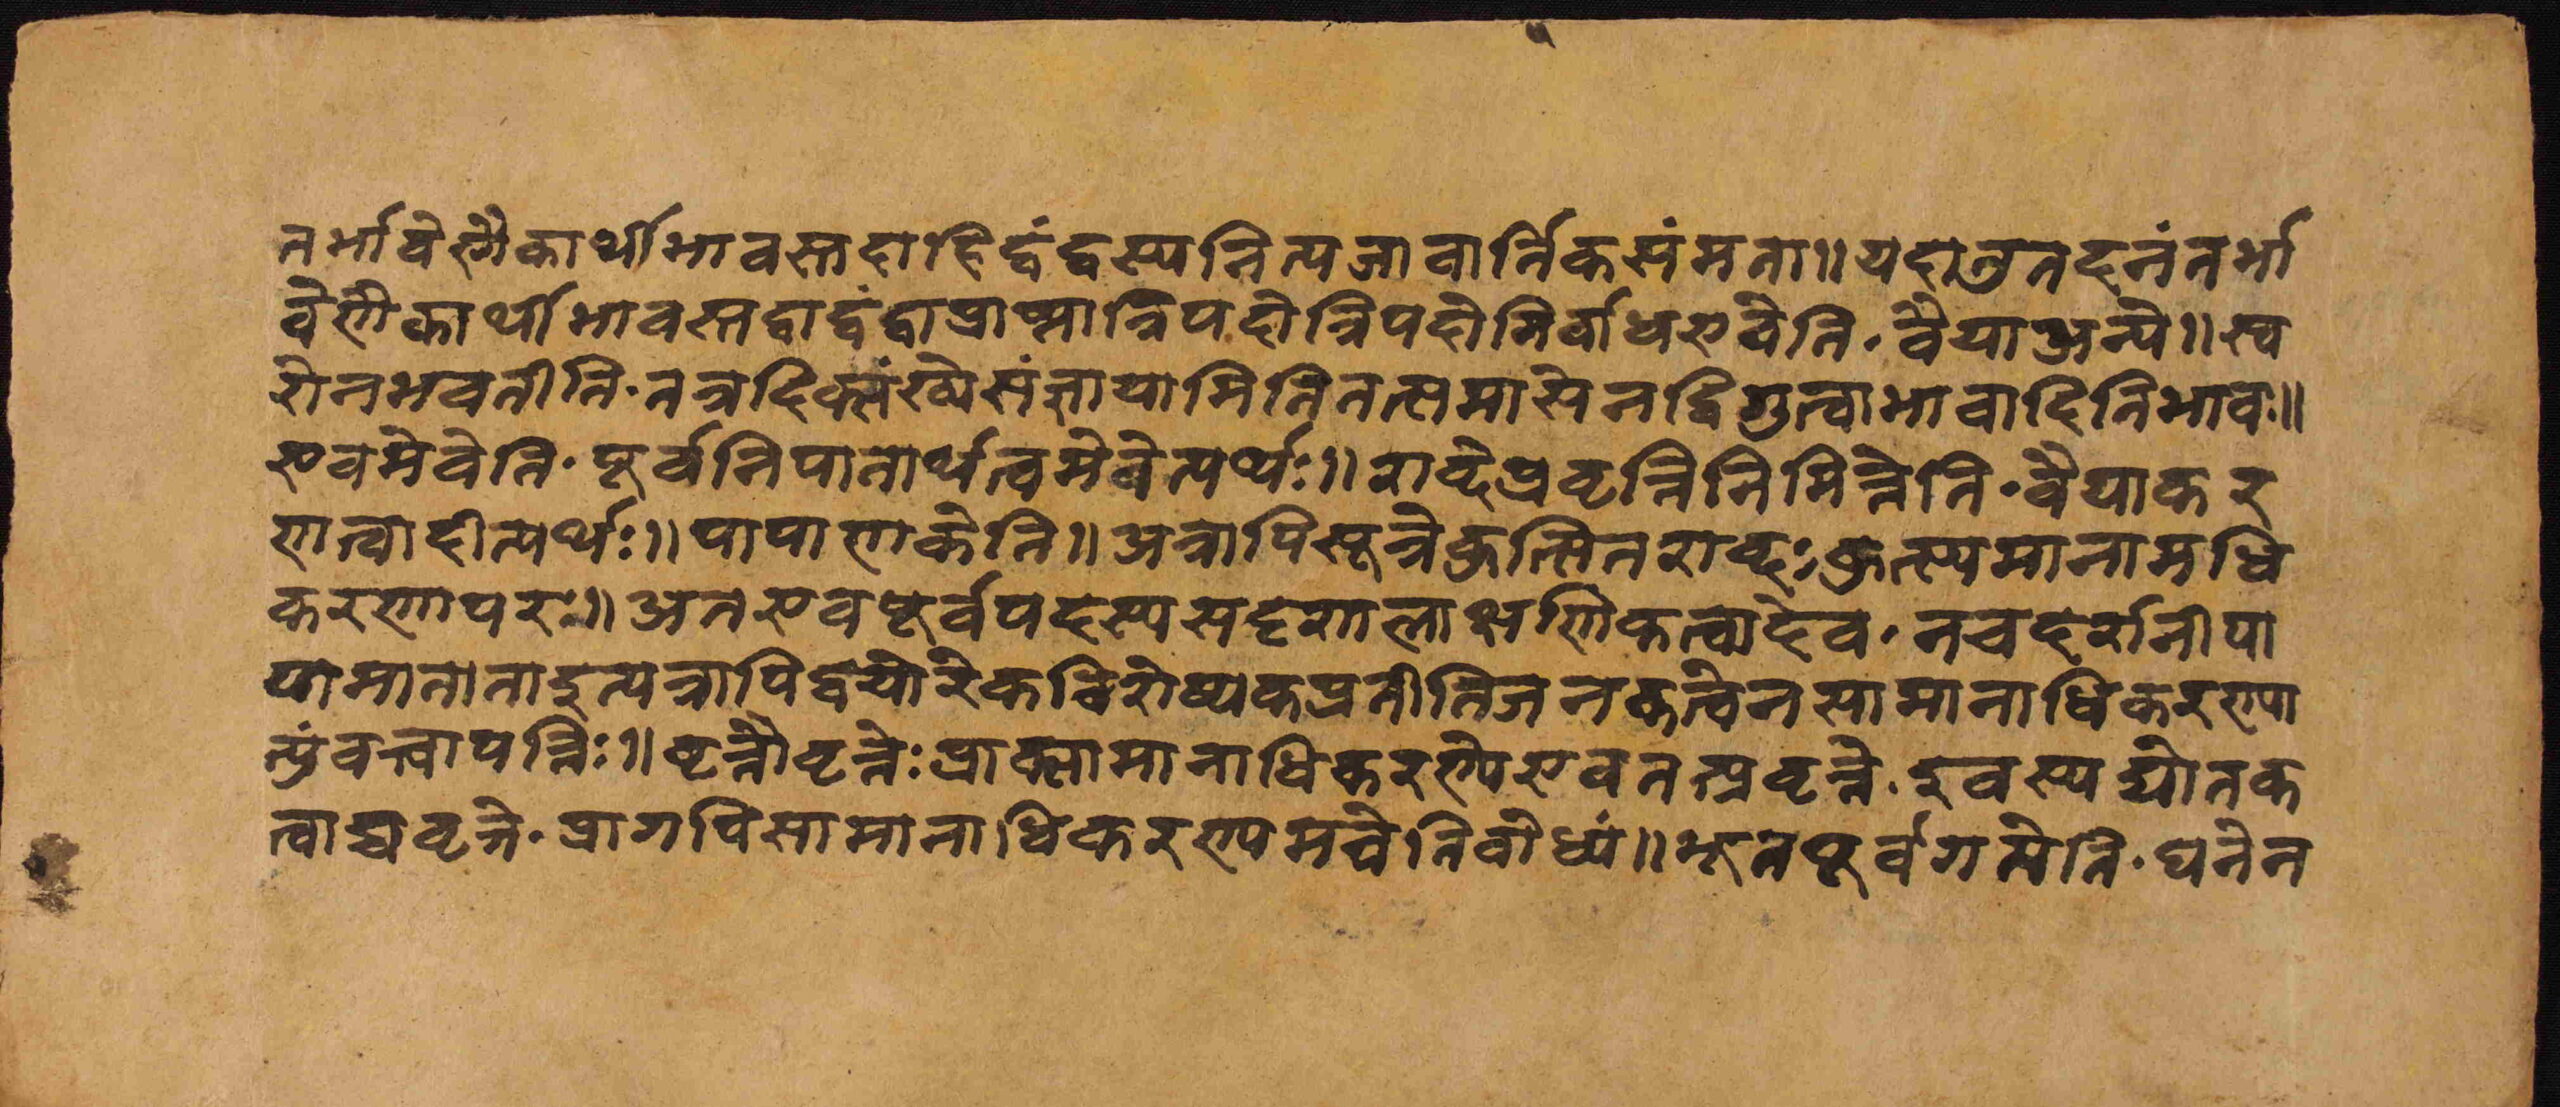 न्तर्भावेणैकार्थीभावस्तदा हि द्वंद्वस्य नित्यता वार्तिकसंमता॥ यदा तु तदनंतर्भा
वेणैकार्थीभावस्तदा द्वंद्वाप्राप्त्या त्रिपदे त्रिपदो निर्बाध एवेति. वैया अन्ये॥ स्व
रो न भवतीति. तत्र दिक्संख्ये संज्ञायामिति तत्समासे न द्विगुत्वाभावादिति भावः॥
एवमेवेति. पूर्वनिपातार्थत्वमेवेत्यर्थः॥ शब्दप्रवृत्तिनिमित्तेति. वैयाकर
णत्वादीत्यर्थः॥ पापाणकेति॥ अत्रापि सूत्रे कुत्सितशब्दः कुत्स्यमानामधि
करणपरः॥ अत एव पूर्वपदस्य सदृशलाक्षणिकत्वादेव. न च दर्शनीया
या माता तादृत्यत्रापि द्वयोरेकविशेष्यकप्रतीतिजनकत्वेन सामानाधिकरण्या
त्पुंवत्त्वापत्तिः॥ वृत्तौ वृत्तेः प्राक्सामानाधिकरण्ये एव तत्प्रवृत्ते. इवस्य द्योतक
त्वाच्च वृत्ते. प्रागपि सामानाधिकरण्यमत्रेति बोध्यं॥ भूतपूर्वगत्येति. घनेन